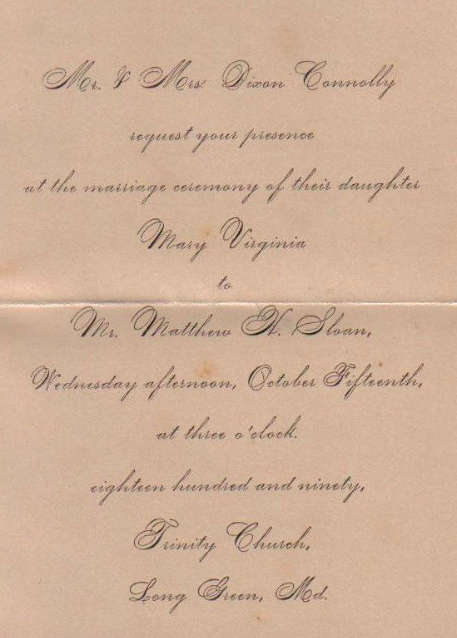 Mr. & Mrs. Dixon Connolly
request your presence
at the marriage ceremony of their daughter
Mary Virginia
to
Mr. Matthew N. Sloan,
Wednesday afternoon, October Fifteenth,
at three o'clock.
eighteen hundred and ninety,
Trinity Church,
Long Green, Md.